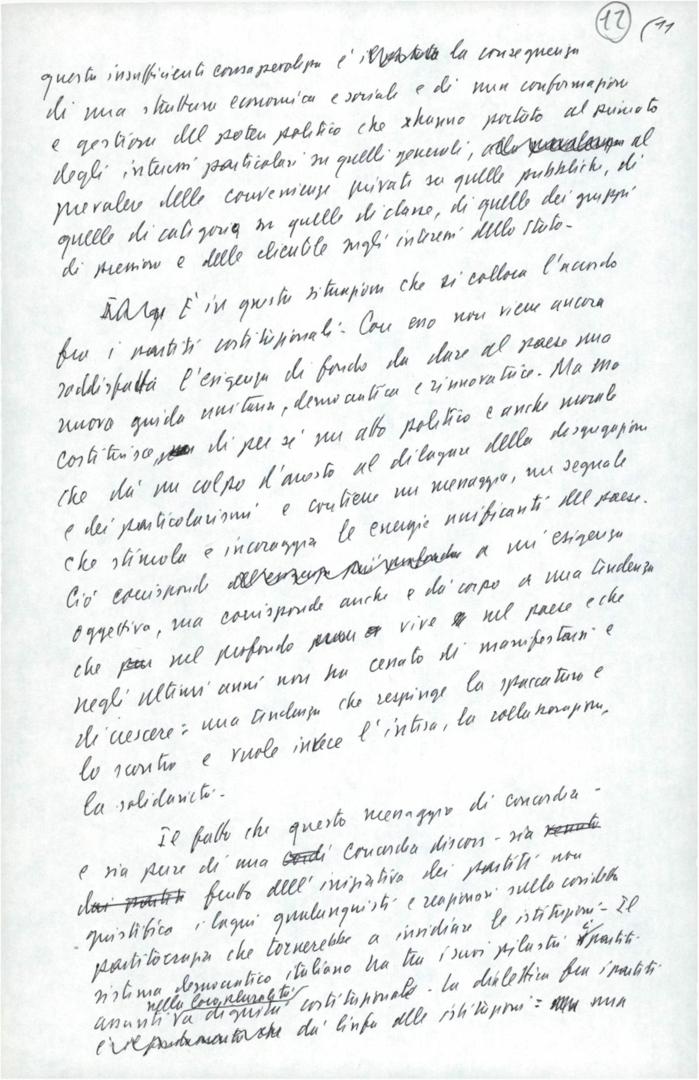 12 (11
questa insufficiente consapevolezza è la conseguenza
di una struttura economica e sociale e di una conformazione
e gestione del potere politico che hanno portato al primato
degli interessi particolari su quelli generali, al
prevalere delle convenienze private su quelle pubbliche, di
quelle di categoria su quelle di classe, di quelle dei gruppi
di pressione e delle clientele sugli interessi dello Stato.
È in questa situazione che si colloca l'accordo
fra i partiti costituzionali. Con esso non viene ancora
soddisfatta l'esigenza di fondo da dare al paese una
nuova guida unitaria, democratica e rinnovatrice. Ma esso
costituisce, di per sé un atto politico e anche morale
che dà un colpo d'arresto al dilagare della disgregazione
e dei particolarismi e contiene un messaggio, un segnale
che stimola e incoraggia le energie unificanti del paese.
Ciò corrisponde a un'esigenza
oggettiva, ma corrisponde anche e dà corpo a una tendenza
che nel profondo vive nel paese e che
negli ultimi anni non ha cessato di manifestarsi e
di crescere: una tendenza che respinge la spaccatura e
lo scontro e vuole invece l'intesa, la collaborazione,
la solidarietà.
Il fatto che questo messaggio di concordia -
e sia pure di una concordia discors - sia
frutto dell'iniziativa dei partiti non
giustifica i lagni qualunquisti e reazionari sulla cosidetta
partitocrazia che tornerebbe a insidiare le istituzioni. Il
sistema democratico italiano ha tra i suoi pilastri i partiti
nella loro pluralità
assunti a dignità costituzionale. La dialettica fra i partiti
è che dà linfa alle istituzioni: una